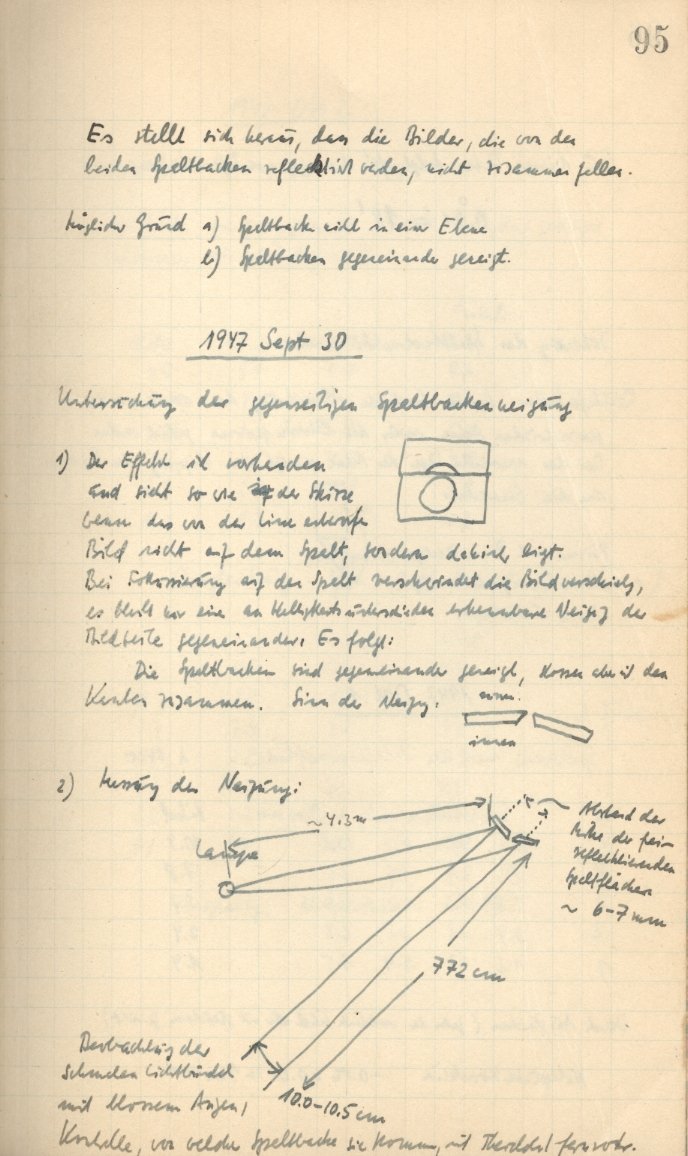 95
Es stellt sich heraus, dass die Bilder, die von den
beiden Spaltbacken reflektiert werden, nicht zusammen fallen.
Möglicher Grund a) Spaltbacken nicht in einer Ebene
b) Spaltbacken gegeneinander geneigt.
1947 Sept 30
Untersuchung der gegenseitigen Spaltbackenneigung
1) Der Effekt ist vorhanden
und sieht so wie in der Skizze
wenn das von der Linse entworfene
Bild nicht auf dem Spalt, sondern dahinter liegt.
Bei Fokussierung auf den Spalt verschwindet die Bildverschiebg,
es bleibt nur eine an Helligkeitsunterschieden erkennbare Neigg der
Bildteile gegeneinander. Es folgt:
Die Spaltbacken sind gegeneinander geneigt, stossen aber mit den
Kanten zusammen. Sinn der Neigg:
innen
2) Messung der Neigung:
~4.3 m
Lampe
Abstand der
Mitte der
reflektierenden
Spaltflächen
~ 6-7 mm
772 cm
Beobachtung der
schmalen Lichtbündel
mit blossem Auge,
10.0-10.5 cm
Kontrolle, von welcher Spaltbacke sie kommen, mit Theodolitfernrohr.